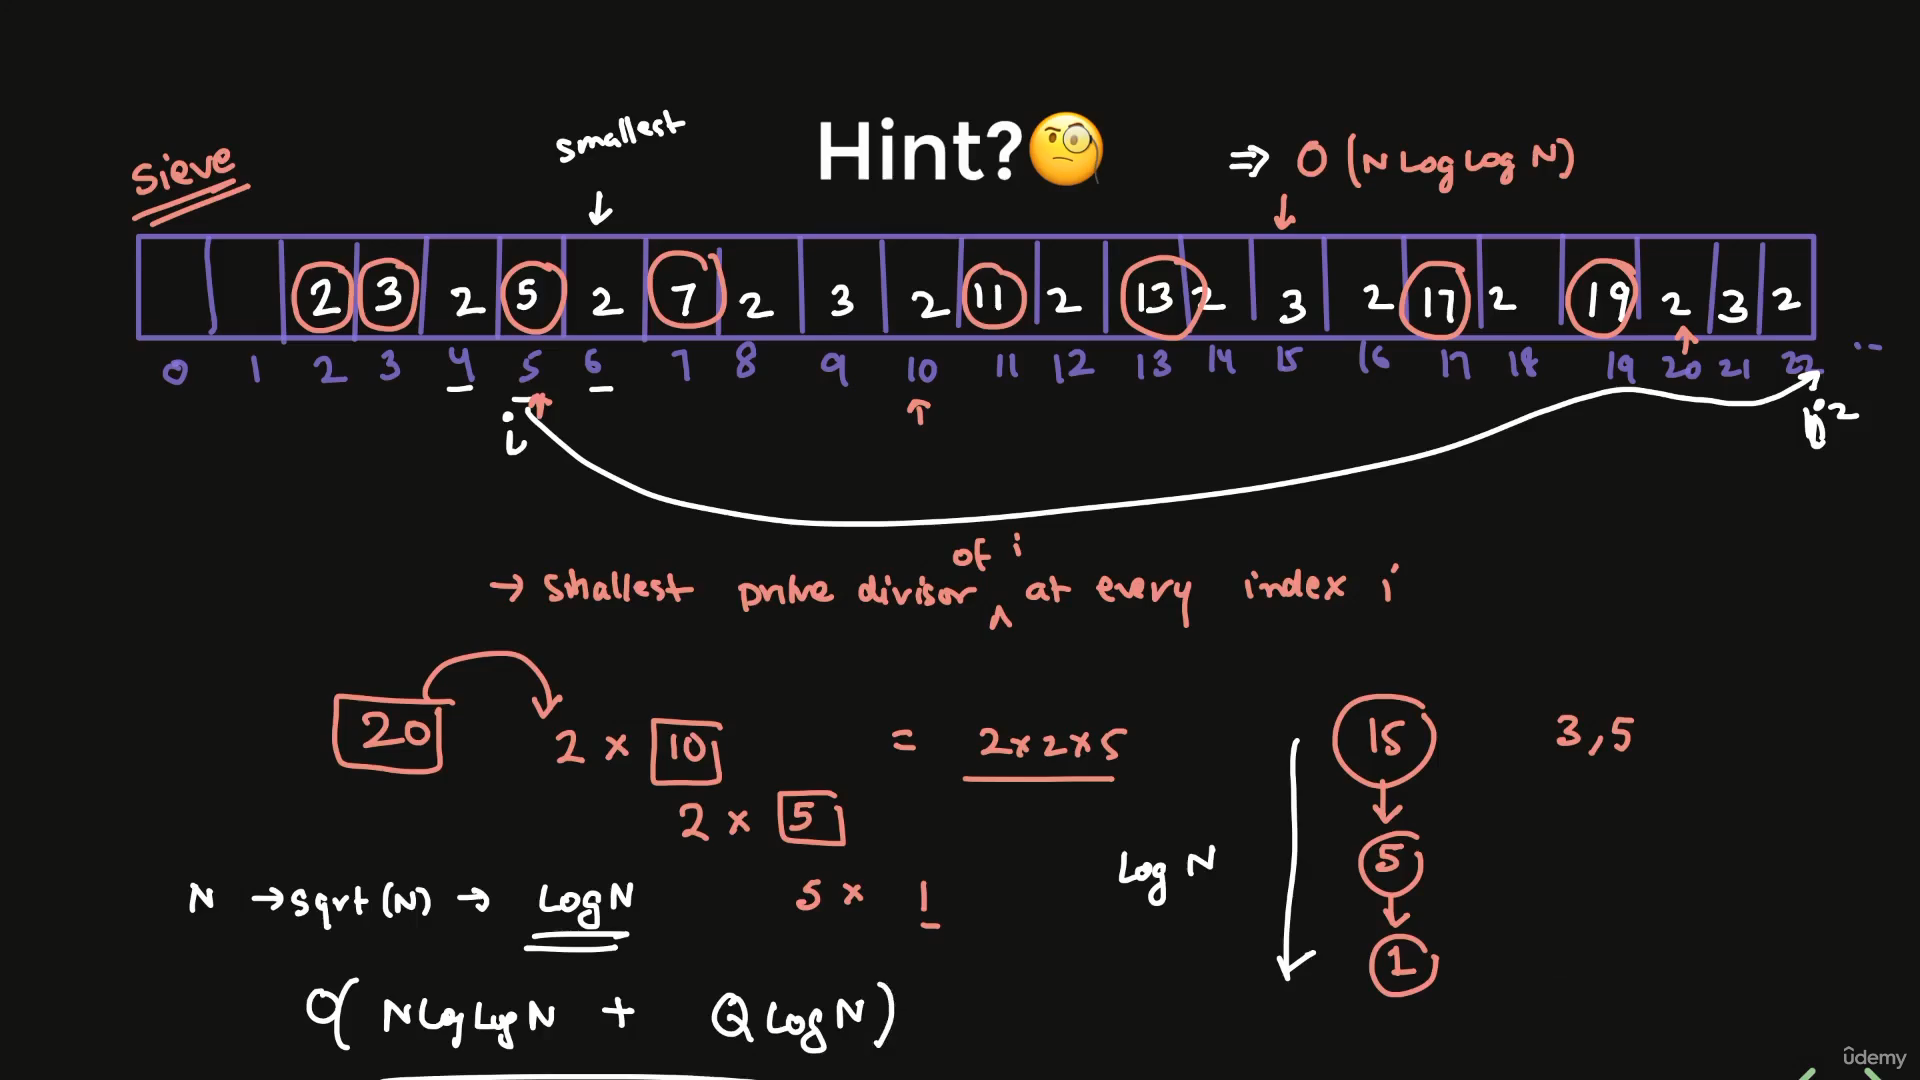 Hint?🧐
smallest
Sieve
⇒ O (N Log Log N)
2 3 2 5 2 7 2 3 2 11 2 13 2 3 2 17 2 19 2 3 2
0 1 2 3 4 5 6 7 8 9 10 11 12 13 14 15 16 17 18 19 20 21 22 ..
i
of i
→ Smallest prime divisor ^ at every index i
20 2 × 10 = 2×2×5 15 3,5
2 × 5
5
Log N
N → sqrt(N) → Log N 5 × 1
1
O( N Log Log N + Q Log N )
ûdemy